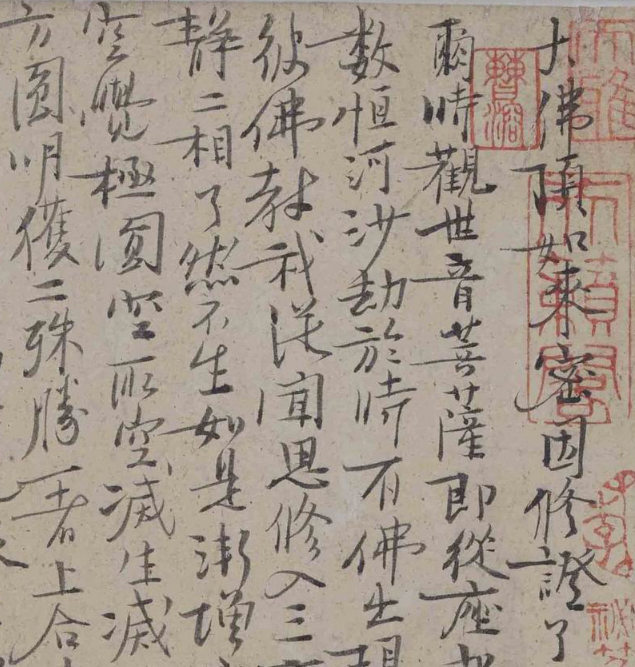 大佛頂如來密因修證了
爾時觀世音菩薩即從座起
數恒河沙劫於時有佛出現
彼佛教我從聞思修入三
靜二相了然不生如是漸增
空覺極圓空所空滅生滅
方圓明獲二殊勝一者上合
曹溶